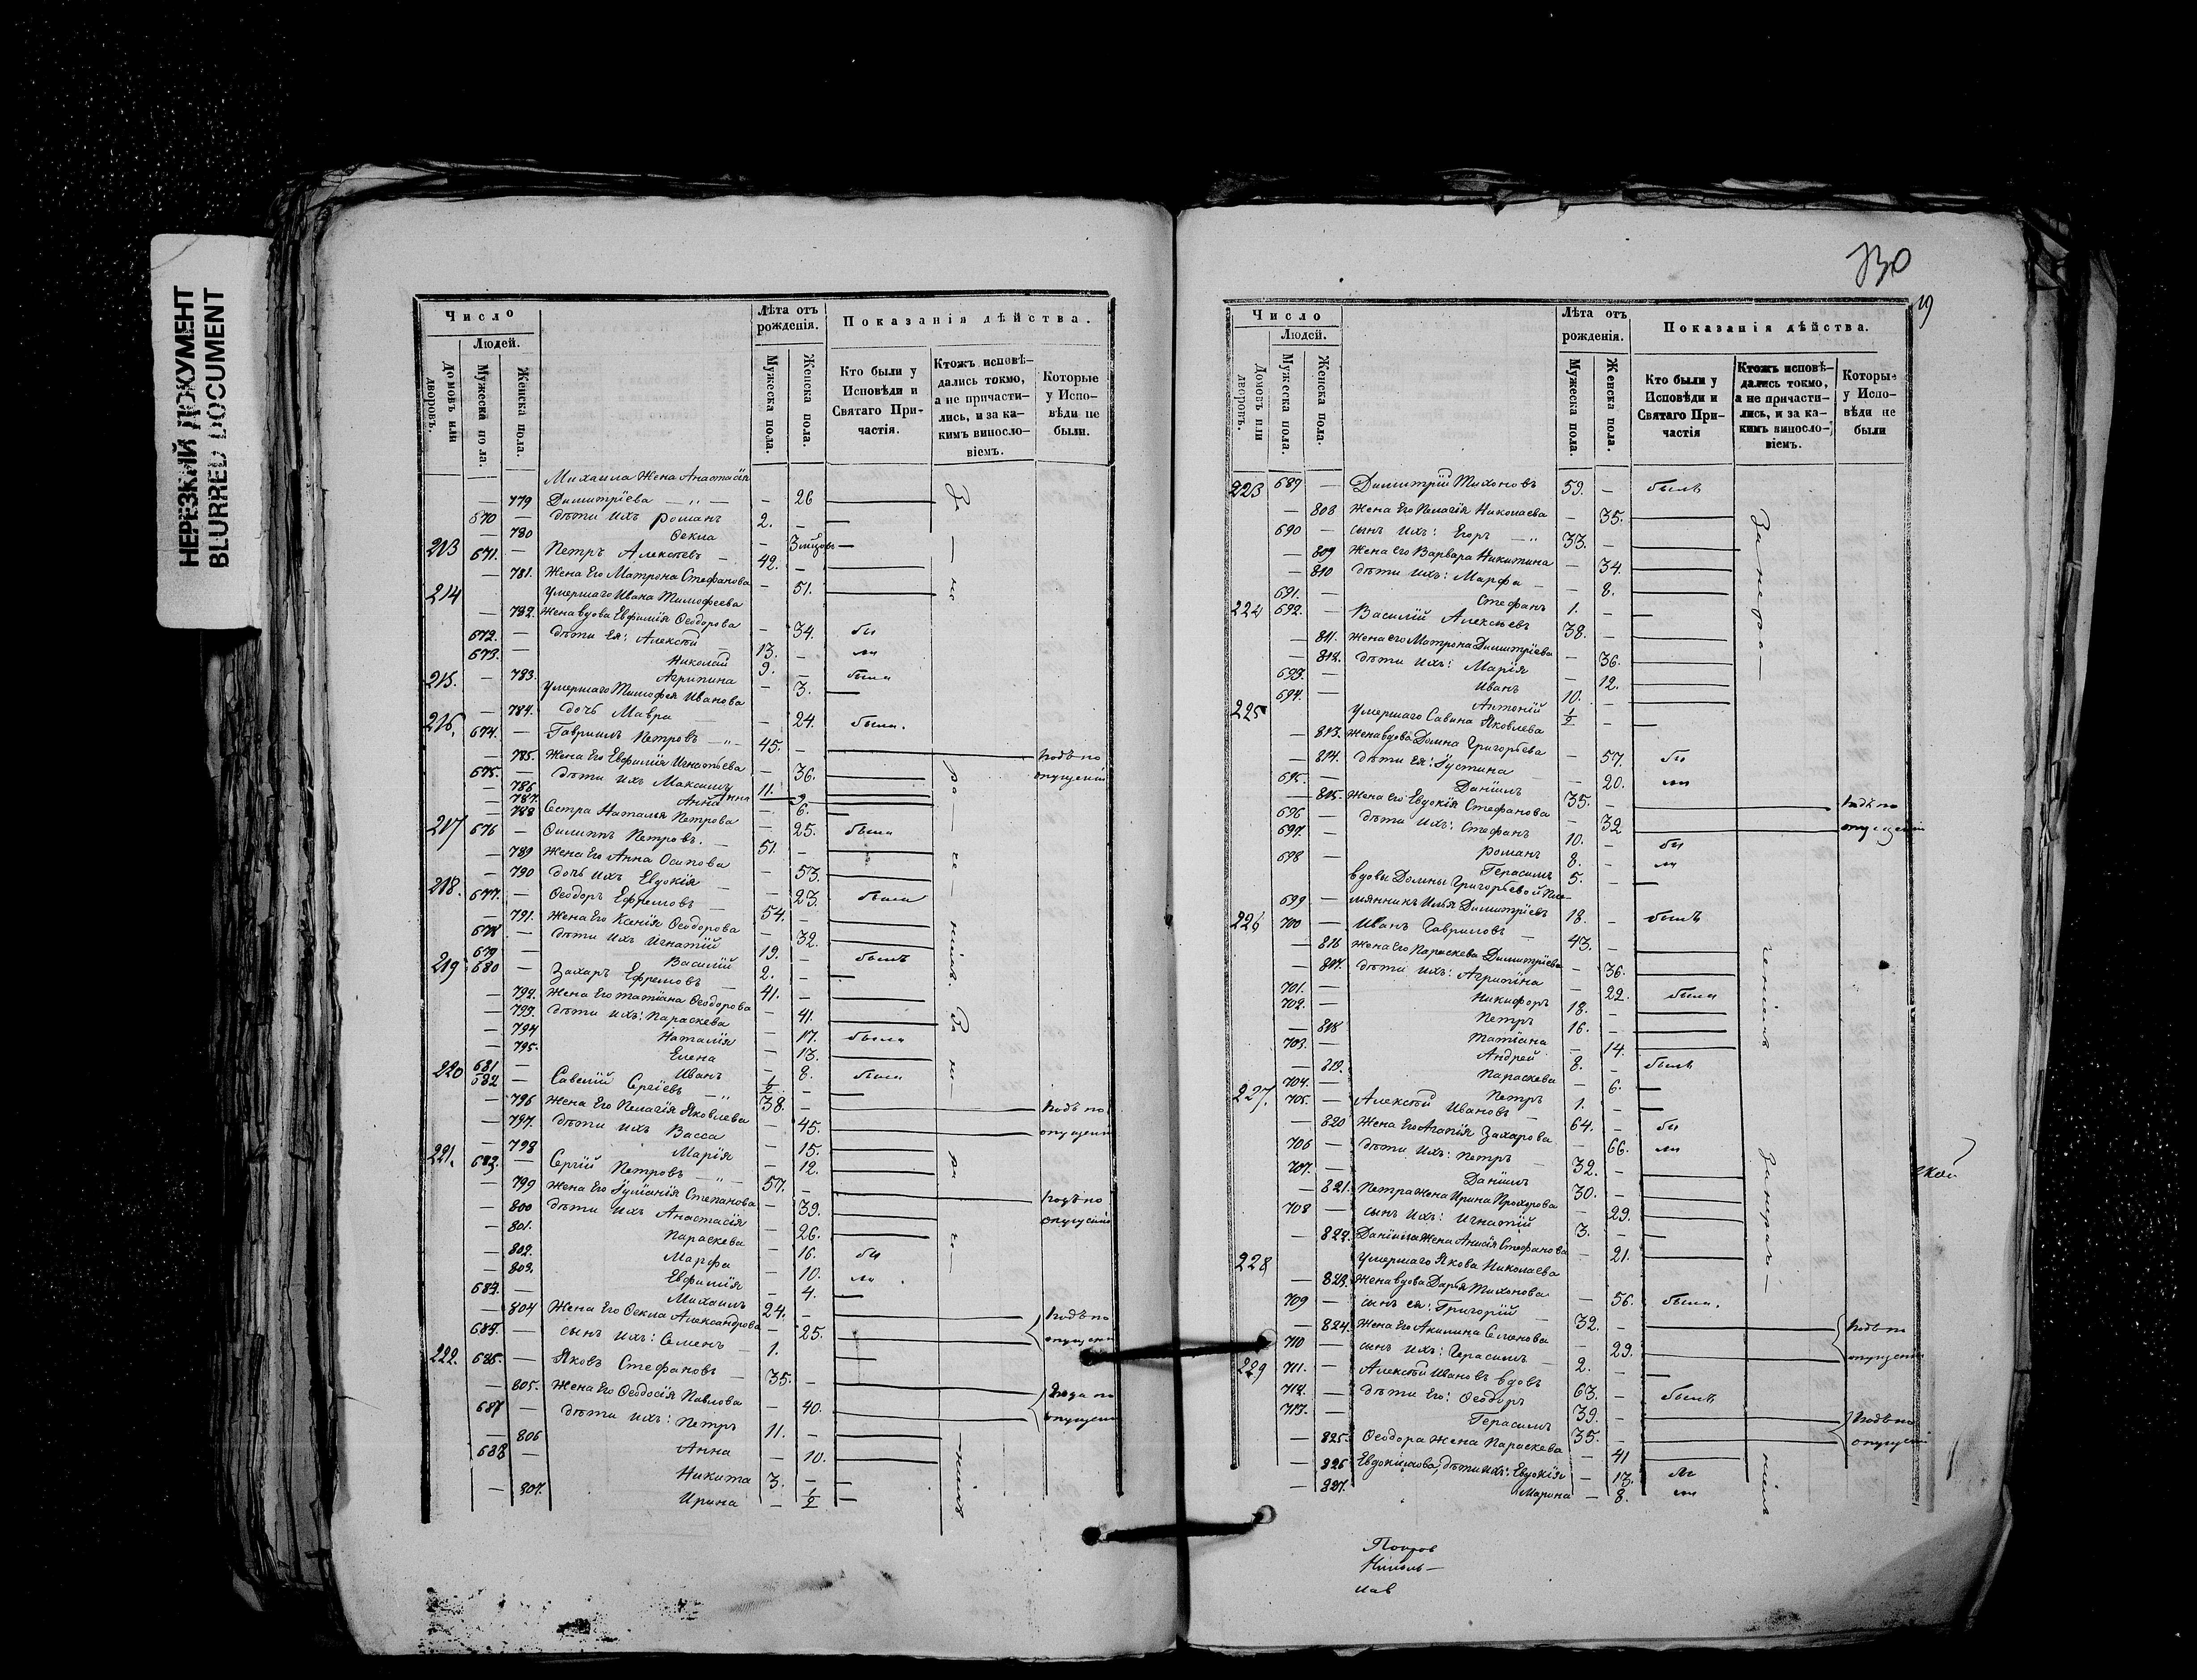 НЕРЕЗКИЙ ДОКУМЕНТ
BLURRED DOCUMENT
Число
Людей.
Домовъ или дворовъ.
Мужеска пола.
Женска пола.
Лѣта отъ рожденія.
Мужеска пола.
Женска пола.
Показанія дѣйства.
Кто были у Исповѣди и Святаго Причастія.
Ктожъ исповѣдались токмо, а не причастились, и за какимъ винословіемъ.
Которые у Исповѣди не были.
Михаила жена Анастасія
— 779 Димитріева — „ — — 26
670 — дѣти ихъ Романъ 2. —
— 780 Ѳекла — 3 мѣсцовъ
213 671. — Петръ Алексѣевъ — 42. —
— 781. Жена Его Матрона Стефанова — 51.
214 Умершаго Ивана Тимофеева
— 782. Жена вдова Евфимія Ѳеодорова — 34. бы
672. — дѣти Ея: Алексѣй 13. — ли
673. — Николай 9. —
— 783. Агрипина — 3. была
215. Умершаго Тимофея Иванова
— 784. дочь Мавра — 24. была.
216. 674. — Гавриилъ Петровъ — „ — 45. —
— 785. Жена Его Евфимія Игнатьева — 36. По опущенію
675. — дѣти ихъ Максимъ 11.
— 786 Анна — 9
— 787. Анна — 6.
— 788 Сестра Наталья Петрова — 25. была
217 676 — Филиппъ Петровъ. — 51. —
— 789 Жена Его Анна Осипова — 53.
— 790 дочь ихъ Евдокія — 23. была
218. 677. — Ѳеодоръ Ефремовъ — 54. —
— 791. Жена Его Ксенія Ѳеодорова — 32.
678 — дѣти ихъ Игнатій 19. — былъ
679 — Василій 2. —
219 680 — Захаръ Ефремовъ — 41. —
— 792. Жена Его Татіана Ѳеодорова — 41.
— 793. дѣти ихъ: Параскева — 17. была
— 794 Наталія — 13.
— 795. Елена — 8. была
681 — Иванъ ½ —
220 682 — Савелій Сергіевъ — „ 38. —
— 796 Жена Его Пелагія Яковлева — 45. по опущенію
— 797. дѣти ихъ Васса — 15.
— 798 Марія — 12.
221. 683. — Сергій Петровъ — „ — 57. —
— 799 Жена Его Іуліанія Степанова — 39. по опущенію
— 800 дѣти ихъ Анастасія — 26.
— 801. Параскева — 16. бы
— 802. Марфа — 10. ли
— 803. Евфимія — 4.
684. — Михаилъ 24. —
— 804 Жена Его Ѳекла Александрова — 25. по опущенію
685. — сынъ ихъ: Семенъ 1.
222. 686. — Яковъ Стефановъ — 35. —
— 805. Жена Его Ѳеодосія Павлова — 40. по опущенію
687 — дѣти ихъ: Петръ 11. —
— 806 Анна — 10.
688 — Никита 3. —
— 807. Ирина — ½
730
19
Число
Людей.
Домовъ или дворовъ.
Мужеска пола.
Женска пола.
Лѣта отъ рожденія.
Мужеска пола.
Женска пола.
Показанія дѣйства.
Кто были у Исповѣди и Святаго Причастія
Ктожъ исповѣдались токмо, а не причастились, и за какимъ винословіемъ.
Которые у Исповѣди не были
223 689 — Димитрій Тихоновъ 59. — былъ
— 808 Жена Его Пелагія Николаева — 35.
690 — сынъ ихъ: Егоръ — „ 33. —
— 809 Жена его Варвара Никитина — 34.
— 810 дѣти ихъ: Марфа — 8.
691. — Стефанъ 1. —
224 692. — Василій Алексѣевъ 38. —
— 811. Жена его Матрона Димитріева — 36.
— 812. дѣти ихъ: Марія — 12.
693. — Иванъ 10. —
694. — Антоній ½ —
225 Умершаго Савина Яковлева
— 813. Жена вдова Домна Григорьева — 57. бы
— 814. дѣти Ея: Іустина — 20. ли
695. — Даніилъ 35. —
— 815. Жена Его Евдокія Стефанова — 32 по опущенію
696 — дѣти ихъ: Стефанъ 10. — бы
697. — Романъ 8. — ли
698 — Герасимъ 5. —
вдовы Домны Григорьевой пле
699 — мянникъ Илья Димитріевъ 18. — былъ
226 700 — Иванъ Гавриловъ — 43. —
— 816 Жена Его Параскева Димитріева — 36.
— 817. дѣти ихъ: Агрипіна — 22. была
701. — Никифоръ 18. —
702. — Петръ 16. —
— 818 Татіана — 14.
703. — Андрей 8. — былъ
— 819. Параскева — 6.
704. — Петръ 1. —
227. 705. — Алексѣй Ивановъ — 64. — бы
— 820 Жена Его Агапія Захарова — 66. ли
706 — дѣти ихъ: Петръ 32. —
707. — Даніилъ 30. —
— 821. Петра жена Ирина Прохорова — 29.
708 — сынъ ихъ: Игнатій 3. —
— 822. Даніила жена Анисія Стефанова — 21.
228 Умершаго Якова Николаева
— 823. Жена вдова Дарья Тихонова — 56. была.
709 — сынъ ея: Григорій 32. —
— 824. Жена Его Акилина Семенова — 29. по опущенію
710 — сынъ ихъ: Герасимъ — 2. —
229 711. — Алексѣй Ивановъ вдовъ 63. — былъ
712. — дѣти Его: Ѳеодоръ 39. —
713. — Герасимъ 35. — по опущенію
— 825. Ѳеодора жена Параскева — 41
— 826 Евдокимова, дѣти ихъ: Евдокія — 13. бы
— 827. Марина — 8. ли
Покров
Николь—